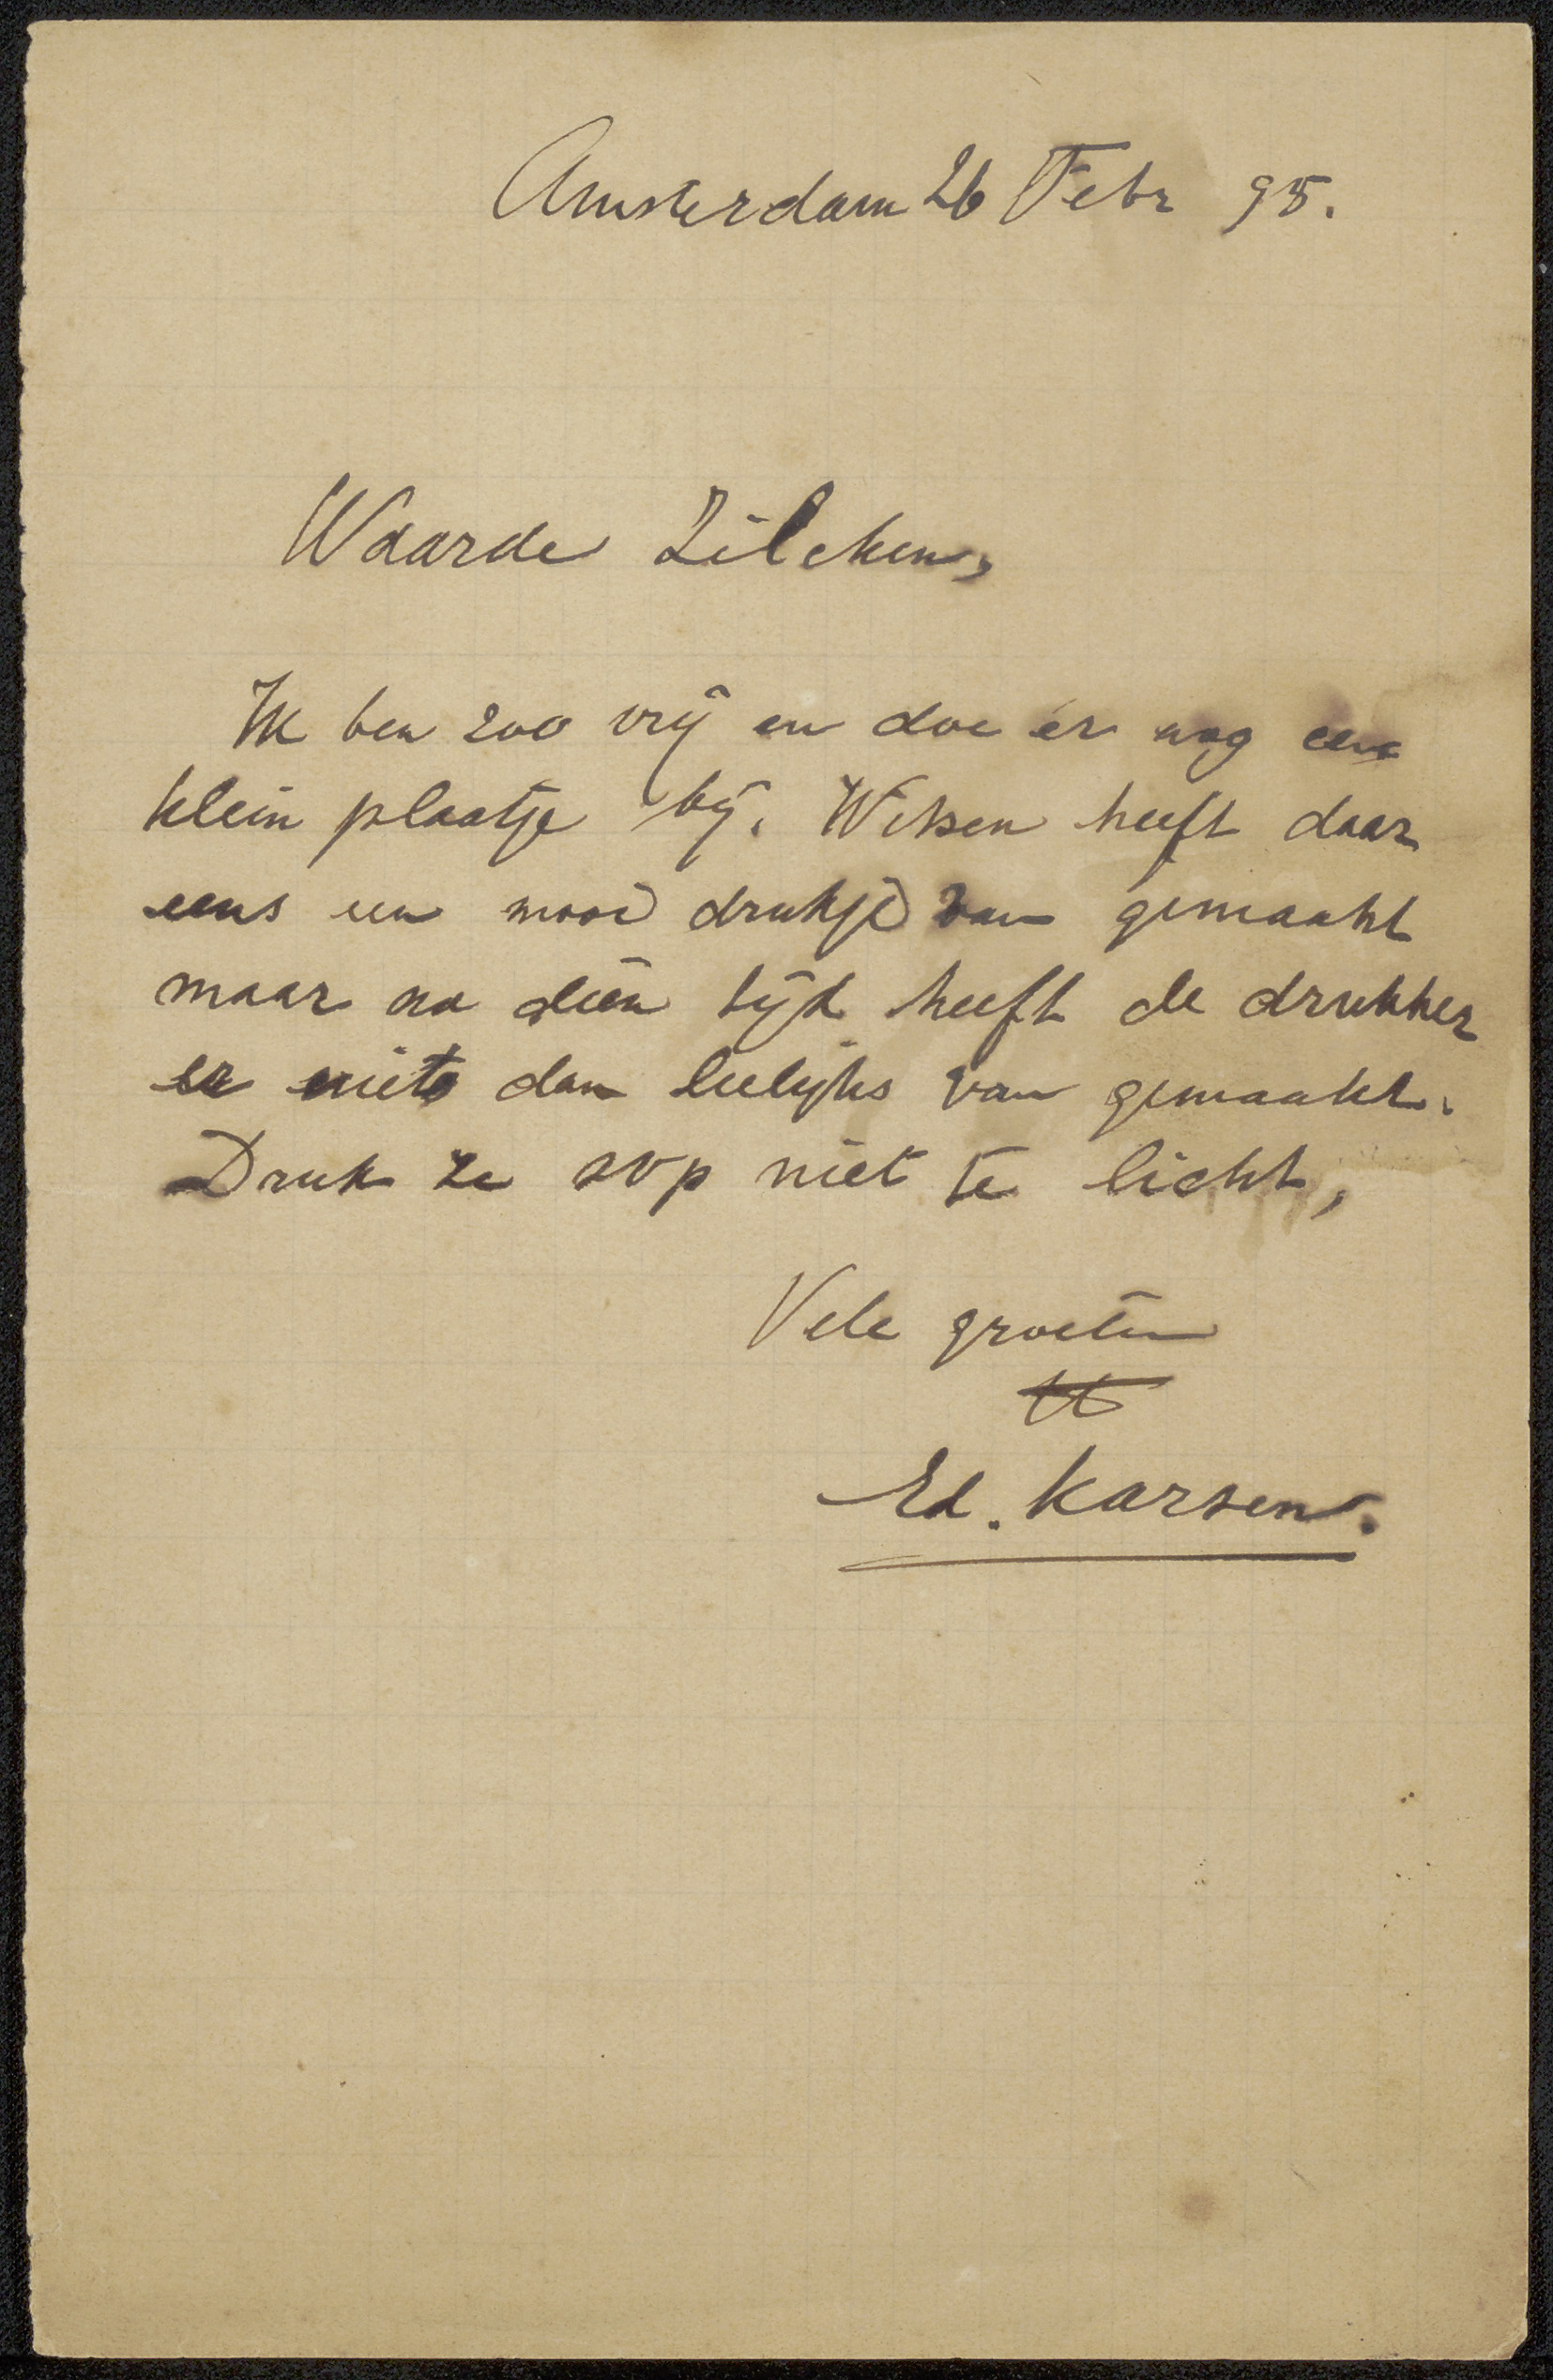 Amsterdam 26 Febr 95.
Waarde Zilcken,
Ik ben zoo vrij en doe er nog een
klein plaatje bij. Witsen heeft daar
eens een mooi drukje van gemaakt
maar na dien tijd heeft de drukker
er niets dan leelijks van gemaakt.
Druk ze svp niet te licht,
Vele groeten
tt
Ed. Karsen.